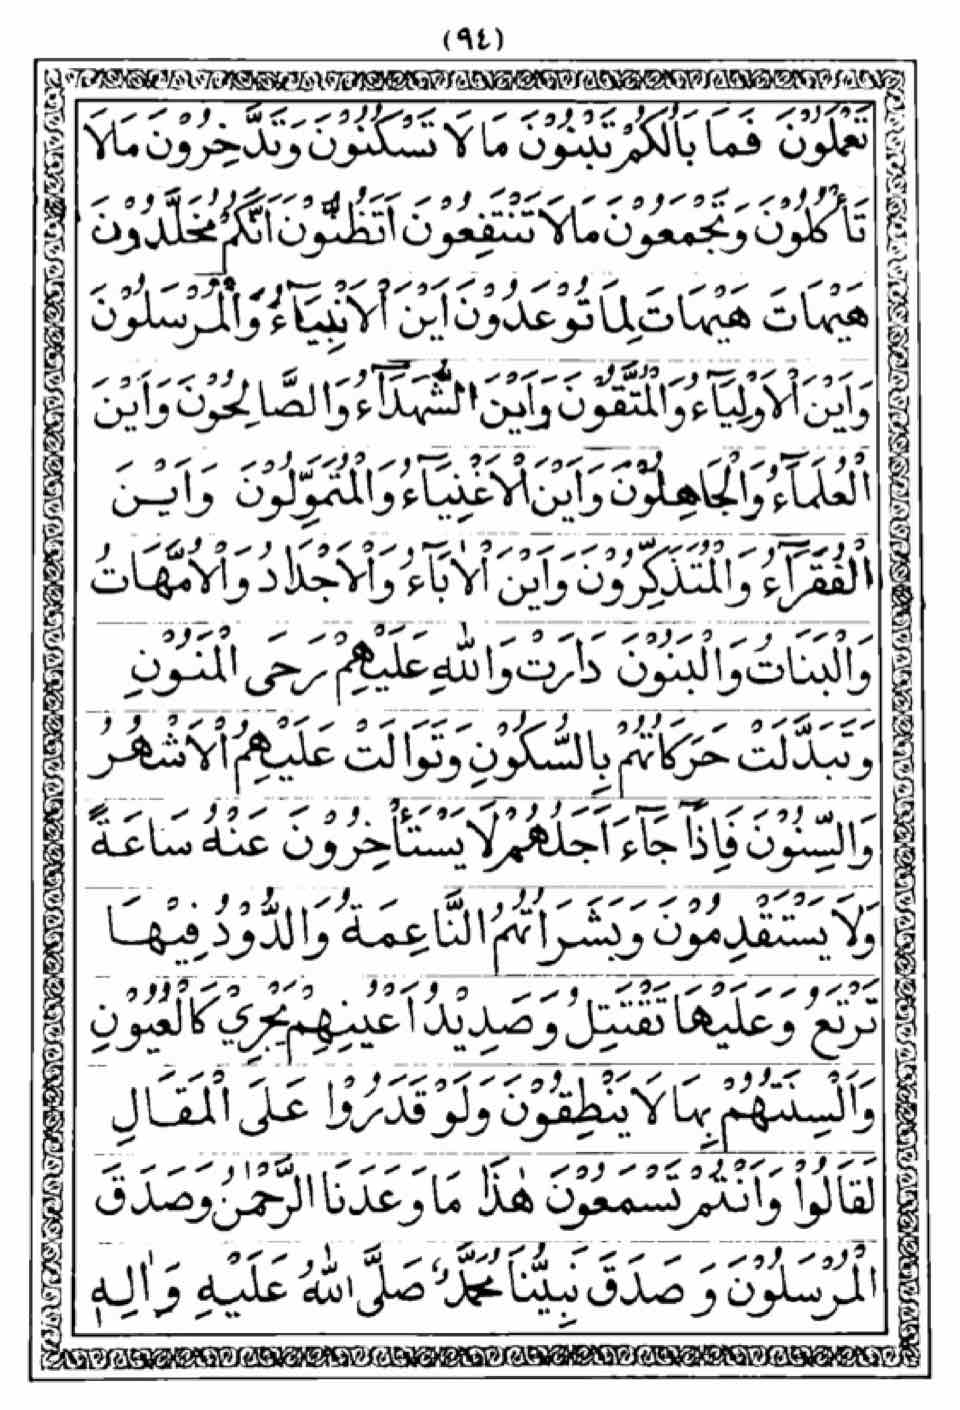 (٩٤)
تَعْمَلُوْنَ فَمَا بَالُكُمْ تَبْنُوْنَ مَا لَا تَسْكُنُوْنَ وَتَدَّخِرُوْنَ مَالَا
تَأْكُلُوْنَ وَتَجْمَعُوْنَ مَالَا تَنْتَفِعُوْنَ اَتَظُنُّوْنَ اَنَّكُمْ مُخَلَّدُوْنَ
هَيْهَاتَ هَيْهَاتَ لِمَا تُوْعَدُوْنَ اَيْنَ الْاَنْبِيَآءُ وَالْمُرْسَلُوْنَ
وَاَيْنَ الْاَوْلِيَآءُ وَالْمُتَّقُوْنَ وَاَيْنَ الشُّهَدَآءُ وَالصَّالِحُوْنَ وَاَيْنَ
الْعُلَمَآءُ وَالْجَاهِلُوْنَ وَاَيْنَ الْاَغْنِيَآءُ وَالْمُتَمَوِّلُوْنَ وَاَيْنَ
الْفُقَرَآءُ وَالْمُتَذَكِّرُوْنَ وَاَيْنَ الْاٰبَآءُ وَالْاَجْدَادُ وَالْاُمَّهَاتُ
وَالْبَنَاتُ وَالْبَنُوْنَ دَارَتْ وَاللّٰهِ عَلَيْهِمْ رَحَى الْمَنُوْنِ
وَتَبَدَّلَتْ حَرَكَاتُهُمْ بِالسُّكُوْنِ وَتَوَالَتْ عَلَيْهِمُ الْاَشْهُرُ
وَالسِّنُوْنَ فَاِذَا جَآءَ اَجَلُهُمْ لَا يَسْتَأْخِرُوْنَ عَنْهُ سَاعَةً
وَلَا يَسْتَقْدِمُوْنَ وَبَشَرَاتُهُمُ النَّاعِمَةُ وَالدُّوْدُ فِيْهَا
تَرْتَعُ وَعَلَيْهَا تَقْتَتِلُ وَصَدِيْدُ اَعْيُنِهِمْ يَجْرِيْ كَالْعُيُوْنِ
وَاَلْسِنَتُهُمْ بِهَا لَا يَنْطِقُوْنَ وَلَوْ قَدَرُوْا عَلَى الْمَقَالِ
لَقَالُوْا وَاَنْتُمْ تَسْمَعُوْنَ هٰذَا مَا وَعَدَنَا الرَّحْمٰنُ وَصَدَقَ
الْمُرْسَلُوْنَ وَصَدَقَ نَبِيُّنَا مُحَمَّدٌ صَلَّى اللّٰهُ عَلَيْهِ وَاٰلِهٖ